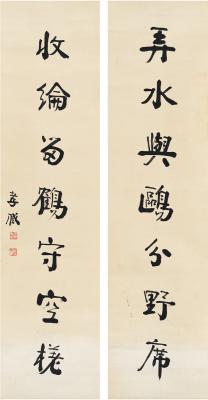 弄水與鷗分野席
收綸留鶴守空槎
孝臧